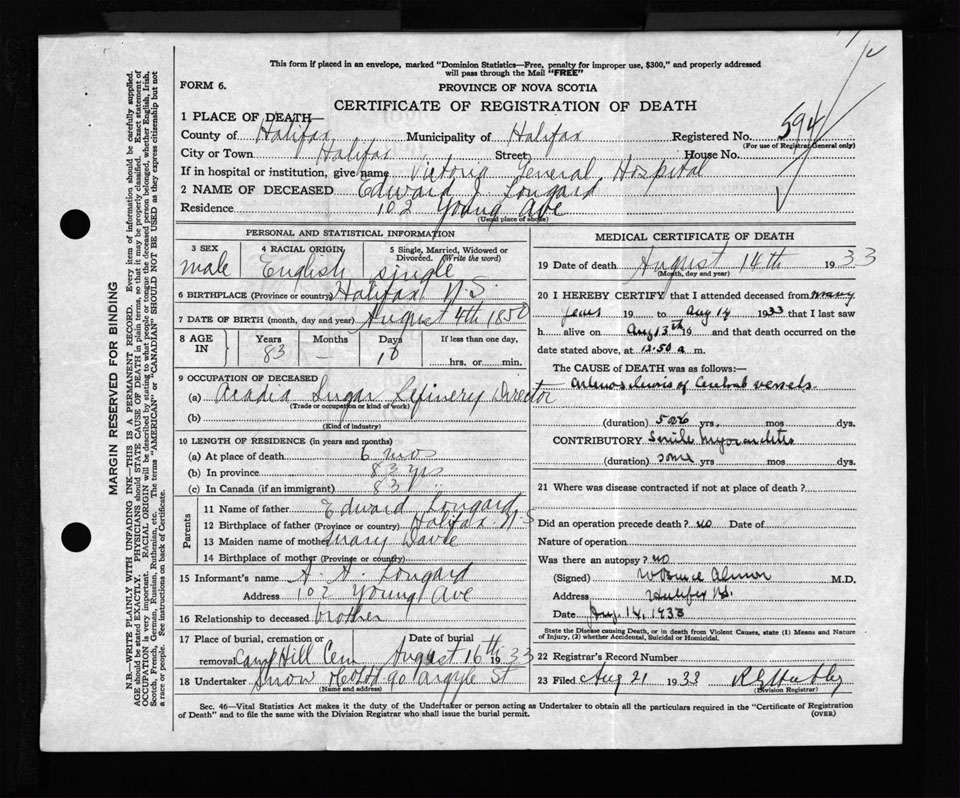 This form if placed in an envelope, marked "Dominion Statistics—Free, penalty for improper use, $300," and properly addressed
will pass through the Mail "FREE"
FORM 6.
PROVINCE OF NOVA SCOTIA
CERTIFICATE OF REGISTRATION OF DEATH
1 PLACE OF DEATH—
County of Halifax Municipality of Halifax Registered No. 594
(For use of Registrar General only)
City or Town Halifax Street House No.
If in hospital or institution, give name Victoria General Hospital
2 NAME OF DECEASED Edward J Longard
Residence 102 Young Ave
(Usual place of abode)
PERSONAL AND STATISTICAL INFORMATION
3 SEX 4 RACIAL ORIGIN 5 Single, Married, Widowed or Divorced. (Write the word)
male English single
6 BIRTHPLACE (Province or country) Halifax N.S.
7 DATE OF BIRTH (month, day and year) August 4th 1850
8 AGE IN Years Months Days If less than one day,
83 — 10 hrs. or min.
9 OCCUPATION OF DECEASED
(a) Acadia Sugar Refinery Director
(Trade or occupation or kind of work)
(b)
(Kind of industry)
10 LENGTH OF RESIDENCE (in years and months)
(a) At place of death 6 mos
(b) In province 83 yrs
(c) In Canada (if an immigrant) 83 "
Parents
11 Name of father Edward Longard
12 Birthplace of father (Province or country) Halifax N S
13 Maiden name of mother Mary Davie
14 Birthplace of mother (Province or country)
15 Informant's name A. A. Longard
Address 102 Young Ave
16 Relationship to deceased brother
17 Place of burial, cremation or removal Camp Hill Cem Date of burial August 16th 1933
18 Undertaker Snow & Co Ltd 90 Argyle St
(Name and address)
MEDICAL CERTIFICATE OF DEATH
19 Date of death August 14th 1933
(Month, day and year)
20 I HEREBY CERTIFY that I attended deceased from many
years 19 to Aug 14 1933 that I last saw
h alive on Aug 13th 19 and that death occurred on
date stated above, at 12.50 a m.
The CAUSE of DEATH was as follows:—
Arteriosclerosis of Cerebral vessels.
(duration) some yrs. mos dys.
CONTRIBUTORY Senile Myocarditis
(duration) some yrs mos dys.
21 Where was disease contracted if not at place of death?
Did an operation precede death? no Date of
Nature of operation
Was there an autopsy? no
(Signed) W Bruce Almon M.D.
Address Halifax N.S.
Date Aug. 14, 1933
State the Disease causing Death, or in death from Violent Causes, state (1) Means and Nature of Injury, (2) whether Accidental, Suicidal or Homicidal.
22 Registrar's Record Number
23 Filed Aug 21 1933
(Division Registrar)
Sec. 46—Vital Statistics Act makes it the duty of the Undertaker or person acting as Undertaker to obtain all the particulars required in the "Certificate of Registration
of Death" and to file the same with the Division Registrar who shall issue the burial permit. (OVER)
MARGIN RESERVED FOR BINDING
N.B.—WRITE PLAINLY WITH UNFADING INK—THIS IS A PERMANENT RECORD. Every item of information should be carefully supplied.
AGE should be stated EXACTLY. PHYSICIANS should STATE CAUSE OF DEATH in plain terms, so that it may be properly classified. Exact statement of
OCCUPATION is very important. RACIAL ORIGIN will be described by stating to what people or tongue the deceased person belonged, whether English, Irish,
Scotch, French, German, Russian, Ruthenian, etc. The terms "AMERICAN" or "CANADIAN" SHOULD NOT BE USED as they express citizenship but not
a race or people. See instructions on back of Certificate.